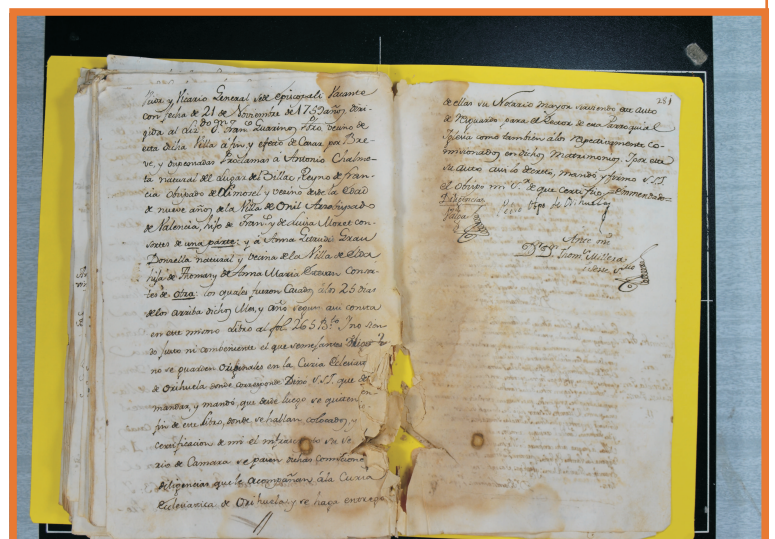 visor y Vicario General Sede Episcopali Vacante
con fecha de 21 de Noviembre de 1759 años diri-
gida al Liz.do Dn Fran.co Guarinos Pbro. vecino de
esta dicha Villa a fin y efecto de Casar, por Bre-
ve, y dispensadas Proclamas à Antonio Chalme-
ta natural del Lugar del Billar, Reyno de Fran-
cia Obispado de Limosel y vecino desde la edad
de nueve años de la Villa de Onil Arzobispado
de Valencia, hijo de Fran.co y de Luisa Moret con-
sortes de una parte; y à Anna Getrudis Grau
Donzella natural y vecina de la Villa de
hija de Thomas y de Anna Maria Estevan Consor-
tes de otra: los quales fueron Casados à los 25 dias
de los arriba dichos Mes, y año segun, assi consta
en este mismo Libro al fol. 265 B.to Y no sien-
do justo ni combeniente el que semejantes Diligen
no se guarden Originales en la Curia Eclesias
de Orihuela donde corresponde Dixo S.S.I. que de
mandar, y mandó, que desde luego se quiten
fin de este Libro, donde se hallan colocados, y
certificacion de mi el infraescrito su Se
rio de Camara se pasen dichas Commisiones
diligencias que le acompañan à la Curia
Ecclesiastica de Orihuela; y se haga entrega
281
de ellas su Notario Mayor sirviendo este Auto
de Resguardo para el Rector de esta Parroquial
Iglesia como tambien à los Respectivamente Co-
misionados en dichos Matrimonios. Y por este
su Auto assi lo decretó, mandó y firmó S.S.I.
el Obispo mi S.r de que Certifico
Pedro Obpo de Orihuela
Ante mi
Dr. Dn. Thom.s